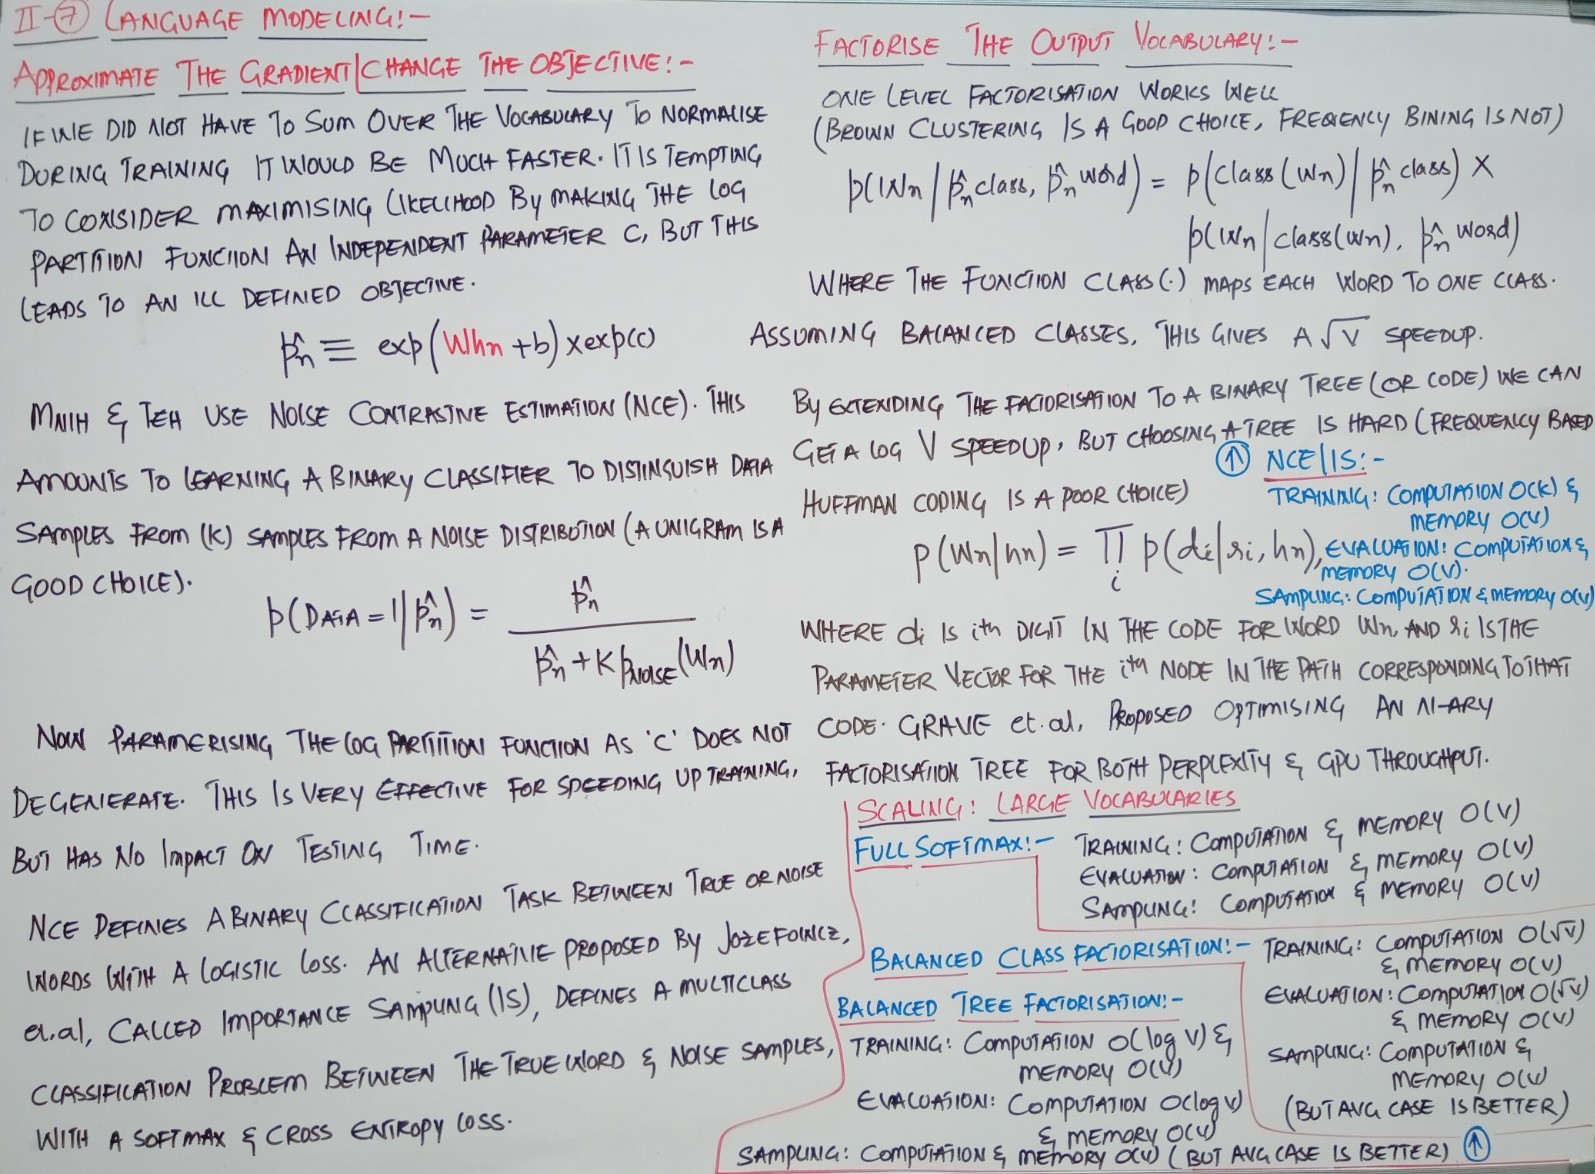 II-⑦ LANGUAGE MODELING:-
APPROXIMATE THE GRADIENT/CHANGE THE OBJECTIVE:-
IF WE DID NOT HAVE TO SUM OVER THE VOCABULARY TO NORMALISE
DURING TRAINING IT WOULD BE MUCH FASTER. IT IS TEMPTING
TO CONSIDER MAXIMISING LIKELIHOOD BY MAKING THE LOG
PARTITION FUNCTION AN INDEPENDENT PARAMETER C, BUT THIS
LEADS TO AN ILL DEFINED OBJECTIVE.
p̂n ≡ exp(Whn + b) × exp(c)
MNIH & TEH USE NOISE CONTRASTIVE ESTIMATION (NCE). THIS
AMOUNTS TO LEARNING A BINARY CLASSIFIER TO DISTINGUISH DATA
SAMPLES FROM (K) SAMPLES FROM A NOISE DISTRIBUTION (A UNIGRAM IS A
GOOD CHOICE).
p(DATA = 1 | p̂n) = p̂n / (p̂n + K pNOISE(Wn))
NOW PARAMERISING THE LOG PARTITION FUNCTION AS 'C' DOES NOT
DEGENERATE. THIS IS VERY EFFECTIVE FOR SPEEDING UP TRAINING,
BUT HAS NO IMPACT ON TESTING TIME.
NCE DEFINES A BINARY CLASSIFICATION TASK BETWEEN TRUE OR NOISE
WORDS WITH A LOGISTIC LOSS. AN ALTERNATIVE PROPOSED BY JOZEFOWICZ,
et.al, CALLED IMPORTANCE SAMPLING (IS), DEFINES A MULTICLASS
CLASSIFICATION PROBLEM BETWEEN THE TRUE WORD & NOISE SAMPLES,
WITH A SOFTMAX & CROSS ENTROPY LOSS.
FACTORISE THE OUTPUT VOCABULARY:-
ONE LEVEL FACTORISATION WORKS WELL
(BROWN CLUSTERING IS A GOOD CHOICE, FREQENCY BINING IS NOT)
p(Wn | p̂n class, p̂n word) = p(class(wn) | p̂n class) ×
p(wn | class(wn), p̂n word)
WHERE THE FUNCTION CLASS(.) MAPS EACH WORD TO ONE CLASS.
ASSUMING BALANCED CLASSES, THIS GIVES A √V SPEEDUP.
BY EXTENDING THE FACTORISATION TO A BINARY TREE (OR CODE) WE CAN
GET A LOG V SPEEDUP, BUT CHOOSING A TREE IS HARD (FREQUENCY BASED
HUFFMAN CODING IS A POOR CHOICE)
p(Wn|hn) = ∏i p(di|ri, hn),
WHERE di IS ith DIGIT IN THE CODE FOR WORD Wn, AND ri IS THE
PARAMETER VECTOR FOR THE ith NODE IN THE PATH CORRESPONDING TO THAT
CODE. GRAVE et.al, PROPOSED OPTIMISING AN N-ARY
FACTORISATION TREE FOR BOTH PERPLEXITY & GPU THROUGHPUT.
↑ NCE/IS:-
TRAINING: COMPUTATION O(K) &
MEMORY O(V)
EVALUATION: COMPUTATION &
MEMORY O(V).
SAMPLING: COMPUTATION & MEMORY O(V)
SCALING: LARGE VOCABULARIES
FULL SOFTMAX:-
TRAINING: COMPUTATION & MEMORY O(V)
EVALUATION: COMPUTATION & MEMORY O(V)
SAMPLING: COMPUTATION & MEMORY O(V)
BALANCED CLASS FACTORISATION:-
TRAINING: COMPUTATION O(√V)
& MEMORY O(V)
EVALUATION: COMPUTATION O(√V)
& MEMORY O(V)
SAMPLING: COMPUTATION &
MEMORY O(V)
(BUT AVG CASE IS BETTER)
BALANCED TREE FACTORISATION:-
TRAINING: COMPUTATION O(log V) &
MEMORY O(V)
EVALUATION: COMPUTATION O(log V)
& MEMORY O(V)
SAMPLING: COMPUTATION & MEMORY O(V) (BUT AVG CASE IS BETTER) ↑